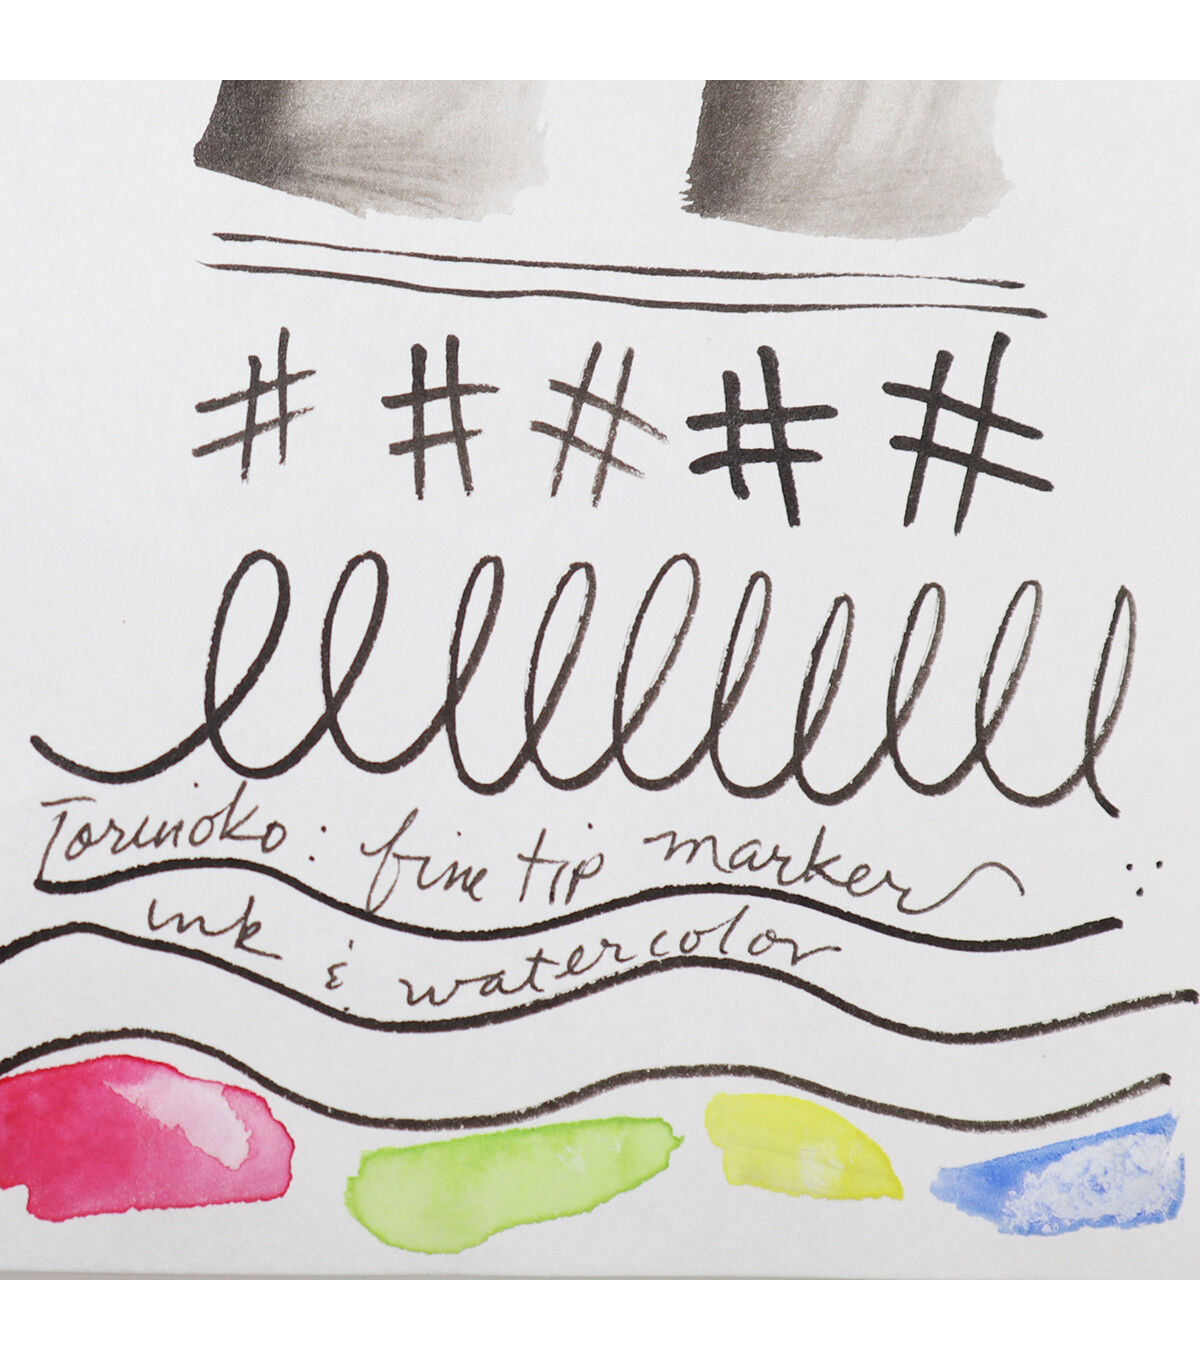 # # # # #
Torinoko: fine tip marker
ink & watercolor